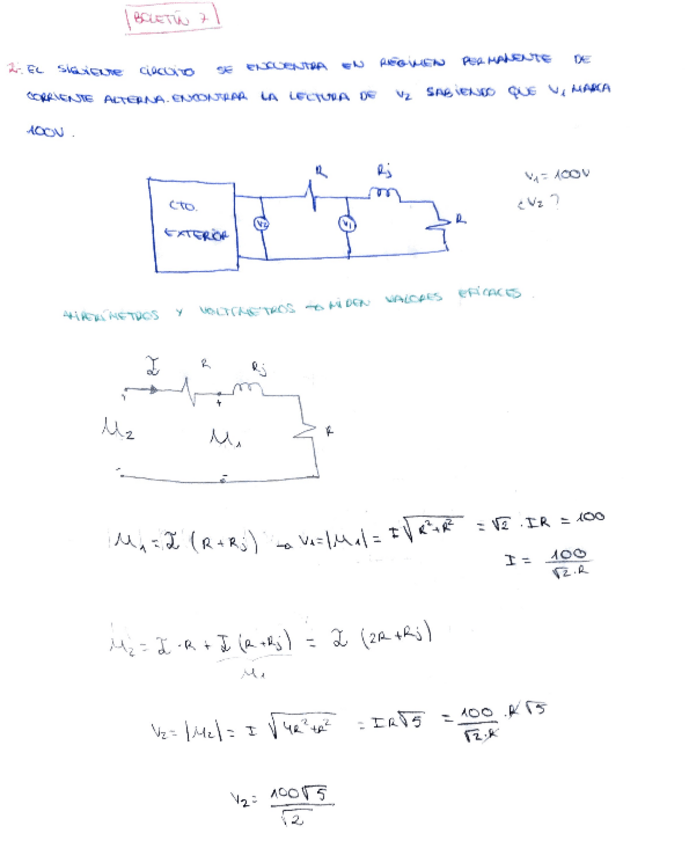 BOLETÍN 7
2.- EL SIGUIENTE CIRCUITO SE ENCUENTRA EN RÉGIMEN PERMANENTE DE
CORRIENTE ALTERNA. ENCONTRAR LA LECTURA DE V2 SABIENDO QUE V1 MARCA
100V.
R Rj
V1 = 100V
¿V2?
CTO.
EXTERIOR
V2 V1 R
AMPERÍMETROS Y VOLTÍMETROS → MIDEN VALORES EFICACES.
I R Rj
+
U2 U1 R
-
U1 = I (R+Rj) → V1 = |U1| = I√(R²+R²) = √2 · IR = 100
I = 100/(√2·R)
U2 = I·R + I (R+Rj) = I (2R+Rj)
U1
V2 = |U2| = I √(4R²+R²) = IR√5 = 100/(√2·R) · R√5
V2 = 100√5/√2